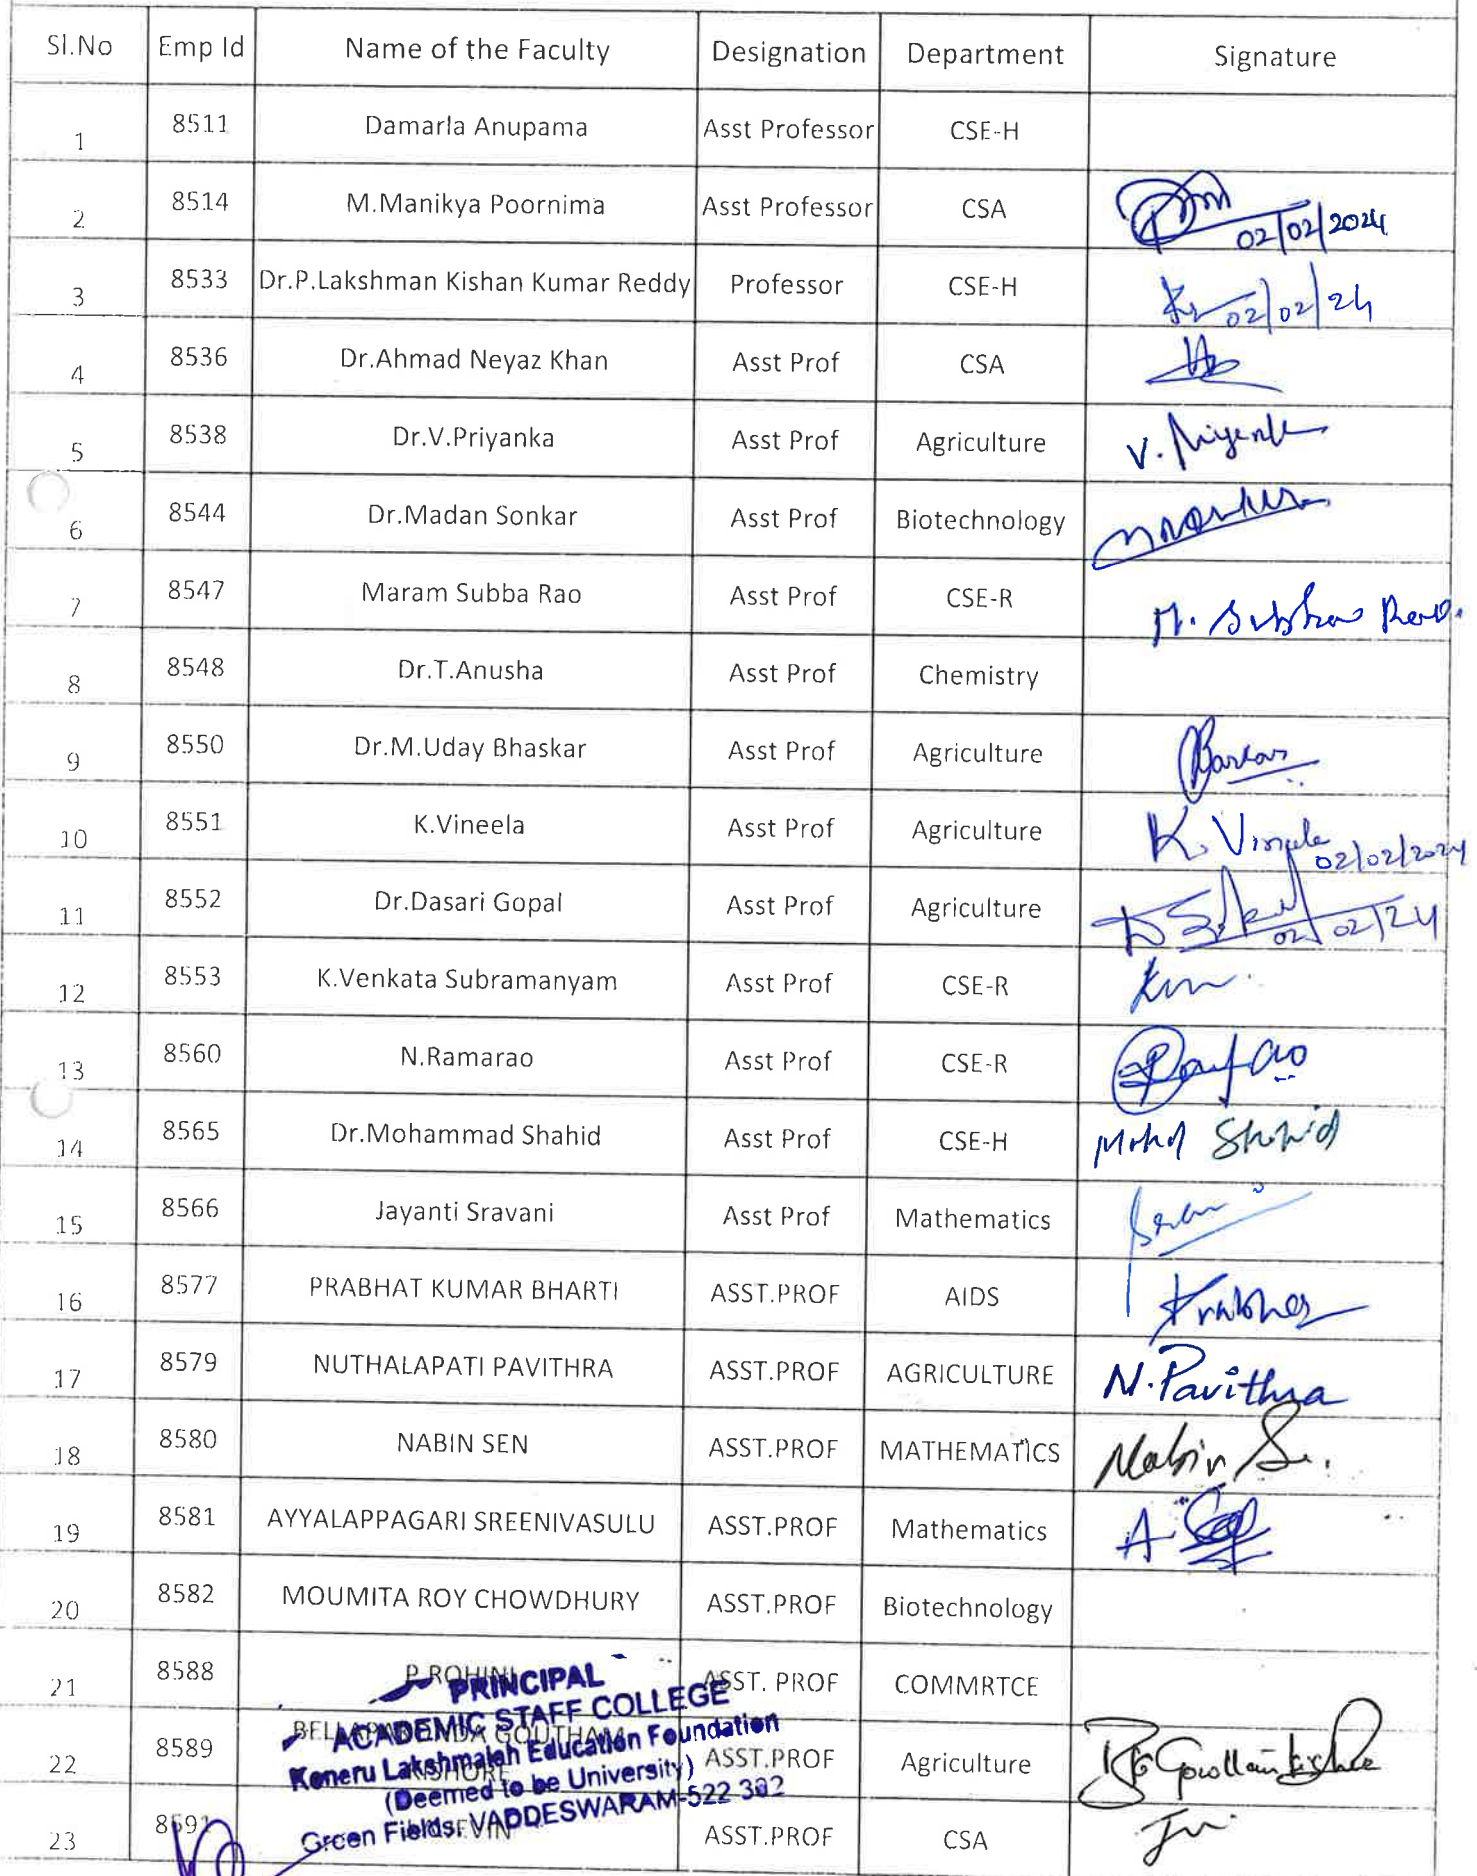 Sl.No Emp Id Name of the Faculty Designation Department Signature
1 8511 Damarla Anupama Asst Professor CSE-H
2 8514 M.Manikya Poornima Asst Professor CSA 02/02/2024
3 8533 Dr.P.Lakshman Kishan Kumar Reddy Professor CSE-H 02/02/24
4 8536 Dr.Ahmad Neyaz Khan Asst Prof CSA
5 8538 Dr.V.Priyanka Asst Prof Agriculture V. Priyanka
6 8544 Dr.Madan Sonkar Asst Prof Biotechnology
7 8547 Maram Subba Rao Asst Prof CSE-R M. Subba Rao.
8 8548 Dr.T.Anusha Asst Prof Chemistry
9 8550 Dr.M.Uday Bhaskar Asst Prof Agriculture
10 8551 K.Vineela Asst Prof Agriculture K. Vineela 02/02/2024
11 8552 Dr.Dasari Gopal Asst Prof Agriculture 02/02/24
12 8553 K.Venkata Subramanyam Asst Prof CSE-R
13 8560 N.Ramarao Asst Prof CSE-R
14 8565 Dr.Mohammad Shahid Asst Prof CSE-H Mohd Shahid
15 8566 Jayanti Sravani Asst Prof Mathematics
16 8577 PRABHAT KUMAR BHARTI ASST.PROF AIDS
17 8579 NUTHALAPATI PAVITHRA ASST.PROF AGRICULTURE N.Pavithra
18 8580 NABIN SEN ASST.PROF MATHEMATICS Nabin Sen.
19 8581 AYYALAPPAGARI SREENIVASULU ASST.PROF Mathematics
20 8582 MOUMITA ROY CHOWDHURY ASST.PROF Biotechnology
21 8588 P ROHINI ASST. PROF COMMRTCE
22 8589 GOUTHAM KISHORE ASST.PROF Agriculture
23 8591 ASST.PROF CSA
PRINCIPAL
ACADEMIC STAFF COLLEGE
Koneru Lakshmaiah Education Foundation
(Deemed to be University)
Green Fields, VADDESWARAM-522 302